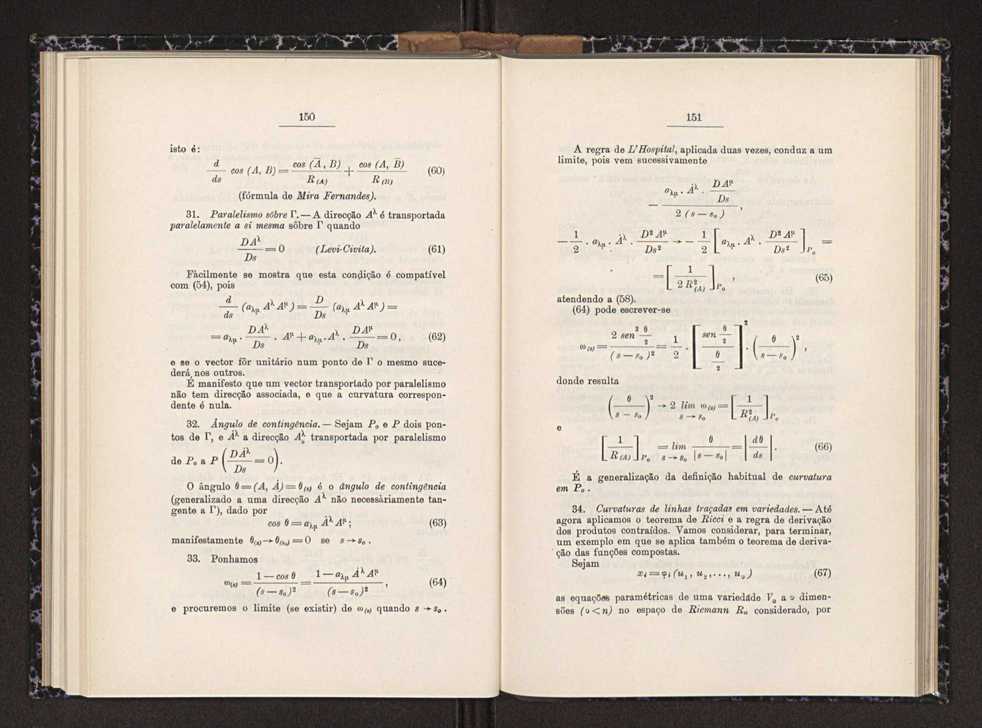 150
isto é:
d/ds cos (A, B) = cos (A̅, B)/R(A) + cos (A, B̅)/R(B) (60)
(fórmula de Mira Fernandes).
31. Paralelismo sôbre Γ. — A direcção A^λ é transportada
paralelamente a si mesma sôbre Γ quando
DA^λ/Ds = 0 (Levi-Civita). (61)
Fàcilmente se mostra que esta condição é compatível
com (54), pois
d/ds (a_λμ A^λ A^μ) = D/Ds (a_λμ A^λ A^μ) =
= a_λμ . DA^λ/Ds . A^μ + a_λμ . A^λ . DA^μ/Ds = 0, (62)
e se o vector fôr unitário num ponto de Γ o mesmo suce-
derá nos outros.
É manifesto que um vector transportado por paralelismo
não tem direcção associada, e que a curvatura correspon-
dente é nula.
32. Ângulo de contingência. — Sejam P₀ e P dois pon-
tos de Γ, e Ȧ^λ a direcção A₀^λ transportada por paralelismo
de P₀ a P (DȦ^λ/Ds = 0).
O ângulo θ = (A, Ȧ) = θ(s) é o ângulo de contingência
(generalizado a uma direcção A^λ não necessàriamente tan-
gente a Γ), dado por
cos θ = a_λμ Ȧ^λ A^μ; (63)
manifestamente θ(s) → θ(s₀) = 0 se s → s₀.
33. Ponhamos
ω(s) = 1 — cos θ/(s — s₀)² = 1 — a_λμ Ȧ^λ A^μ/(s — s₀)², (64)
e procuremos o limite (se existir) de ω(s) quando s → s₀.
151
A regra de L'Hospital, aplicada duas vezes, conduz a um
limite, pois vem sucessivamente
— a_λμ . Ȧ^λ . DA^μ/Ds / 2 (s — s₀),
— 1/2 . a_λμ . Ȧ^λ . D²A^μ/Ds² → — 1/2 [a_λμ . A^λ . D²A^μ/Ds²]P₀ =
= [1/2 R²(A)]P₀, (65)
atendendo a (58).
(64) pode escrever-se
ω(s) = 2 sen² θ/2 / (s — s₀)² = 1/2 [sen θ/2 / θ/2]² . (θ/s — s₀)²,
donde resulta
(θ/s — s₀)² → 2 lim ω(s) s → s₀ = [1/R²(A)]P₀
e
[1/R(A)]P₀ = lim s → s₀ θ/|s — s₀| = |dθ/ds|. (66)
É a generalização da definição habitual de curvatura
em P₀.
34. Curvaturas de linhas traçadas em variedades. — Até
agora aplicamos o teorema de Ricci e a regra de derivação
dos produtos contraídos. Vamos considerar, para terminar,
um exemplo em que se aplica também o teorema de deriva-
ção das funções compostas.
Sejam
x_i = φ_i (u₁, u₂, ..., u_ν) (67)
as equações paramétricas de uma variedade V_ν a ν dimen-
sões (ν < n) no espaço de Riemann R_n considerado, por